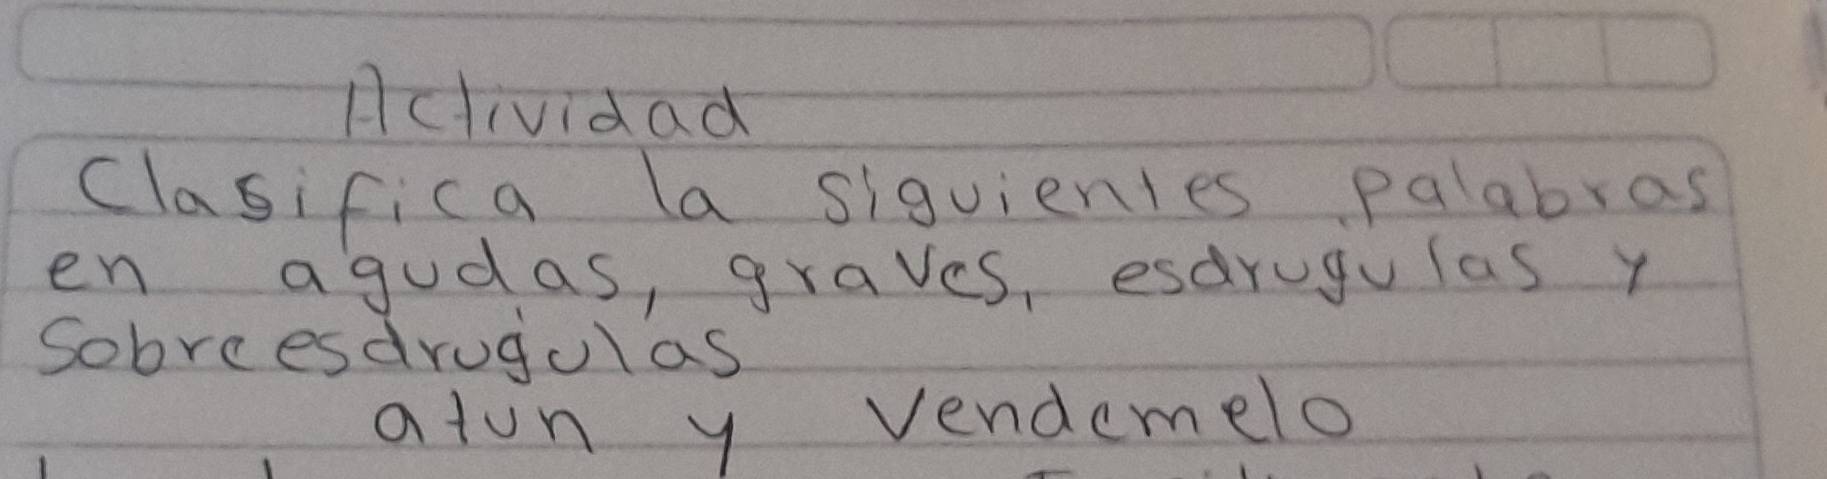 Actividad
Clasifica la siguientes palabras
en agudas, graves, esdrugulas y
Sobreesdrugulas
atun y Vendemelo